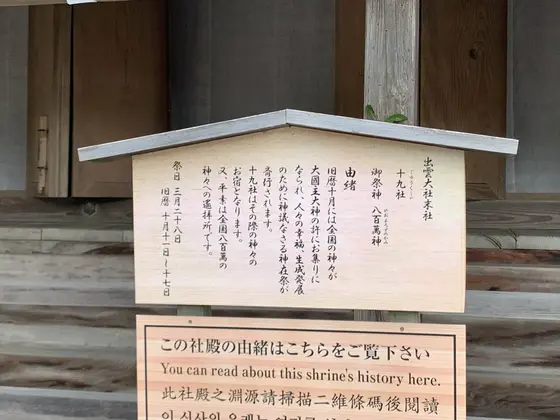 出雲大社末社
十九社
御祭神 八百萬神
由緒
旧暦十月には全国の神々が
大國主大神の許にお集りに
なられ、人々の幸福、生成発展
のために神議なさる神在祭が
斎行されます。
十九社はその際の神々の
お宿となります。
又、平素は全国八百萬の
神々への遥拝所です。
祭日 三月二十八日
旧暦 十月十一日〜十七日
この社殿の由緒はこちらをご覧下さい
You can read about this shrine's history here.
此社殿之淵源請掃描二維條碼後閱讀